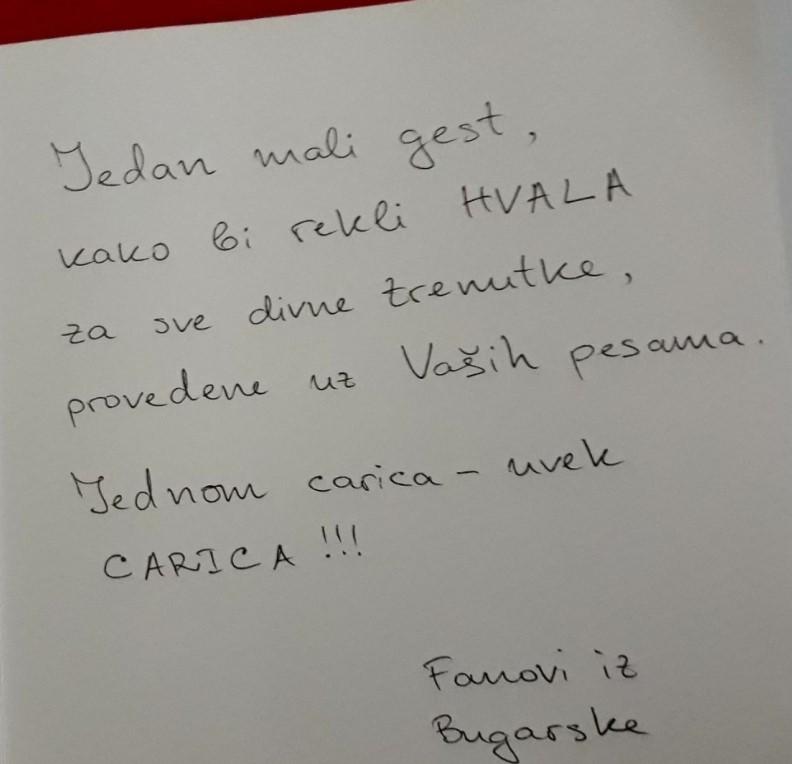 Jedan mali gest,
kako bi rekli HVALA
za sve divne trenutke,
provedene uz Vaših pesama.
Jednom carica - uvek
CARICA !!!
Fanovi iz
Bugarske